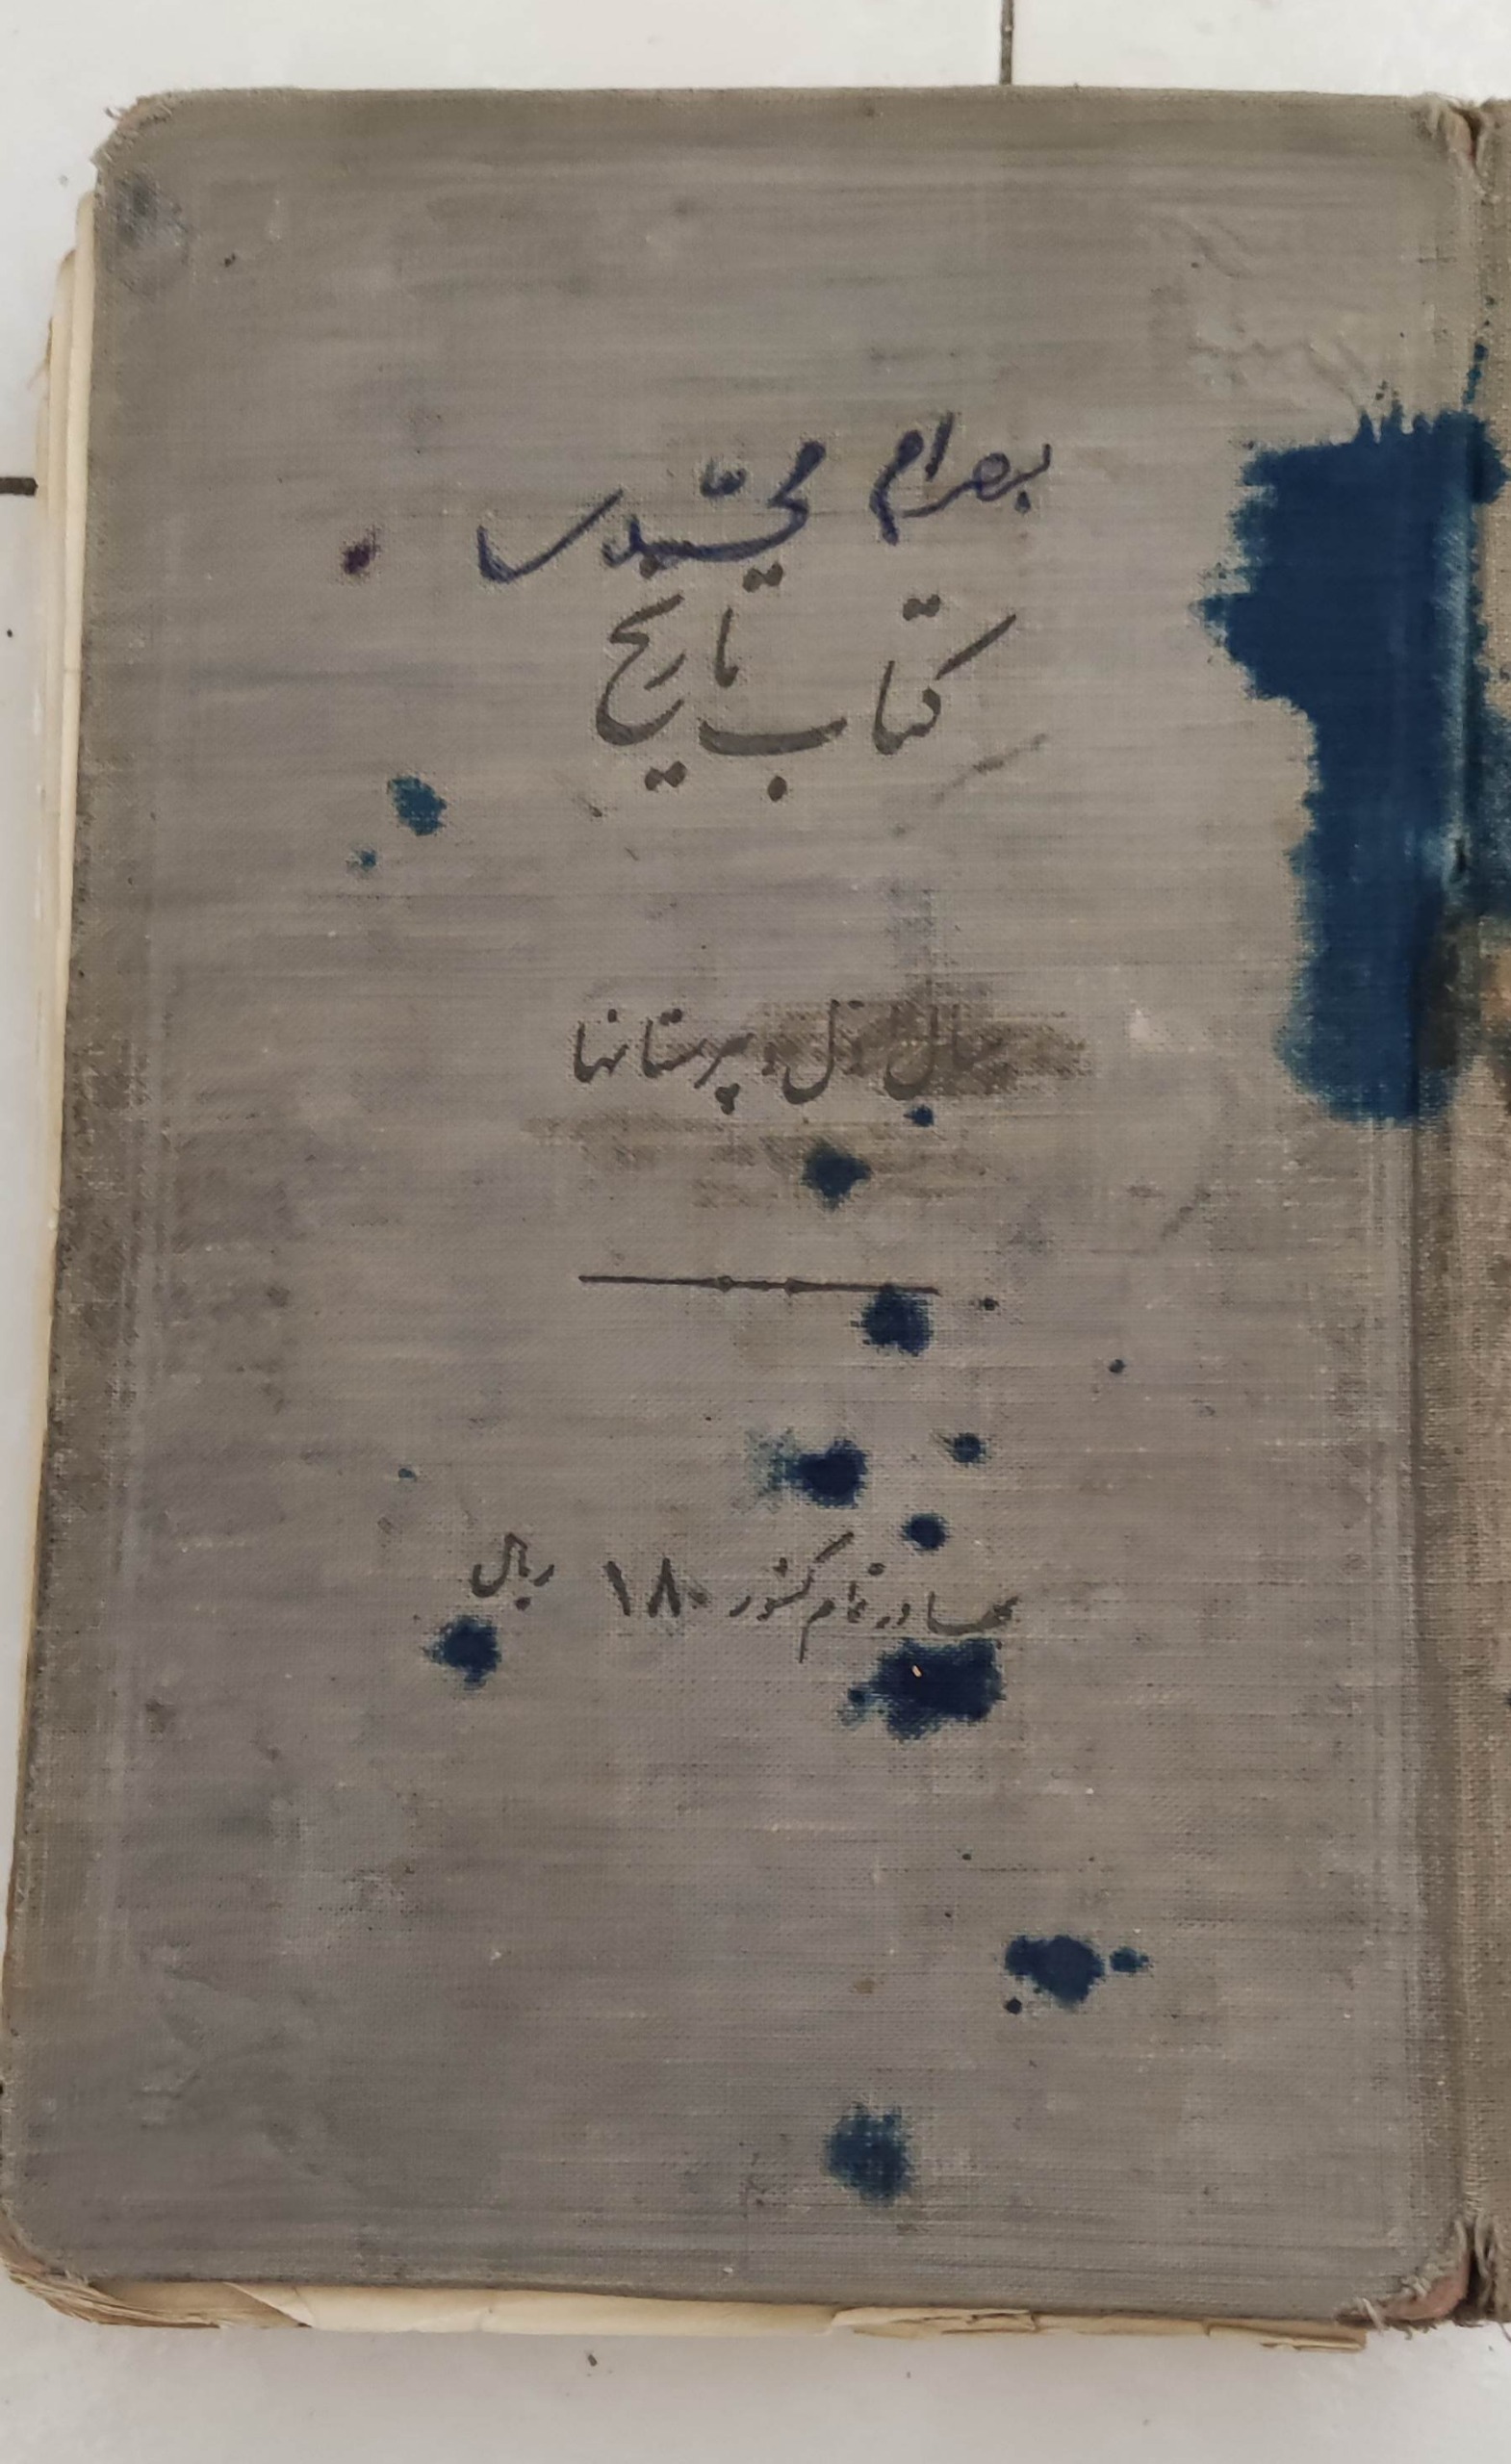 بهرام
کتاب تاریخ
سال اول دبیرستانها
بها در تمام کشور ۱۸۰ ریال